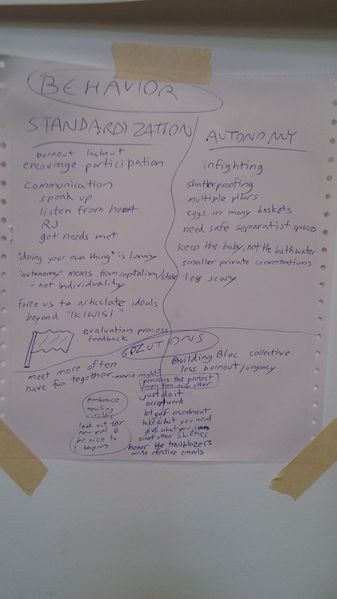 BEHAVIOR
STANDARDIZATION/
burnout lashout
encourage participation
communication
speak up
listen from heart
RJ
get needs met
"doing your own thing" is luxury
"autonomy" means from capitalism/state
- not individuality
force us to articulate ideals
beyond "IKIWISI"
evaluation process
feedback
AUTONOMY
infighting
shatterproofing
multiple pillars
eggs in many baskets
need safe separatist spaces
keep the baby, not the bathwater
smaller private conversations
less scary
SOLUTIONS
meet more often
have fun together movie night?
embrace
healing
circles
look out for
new ppl &
be nice to
them
Building Bloc collective
less burnout/urgency
processes that protect
people from each other
just do it
accept work
let go of resentment
take what you need
give what you can
about other abilities
honor the trailblazers
write effective emails